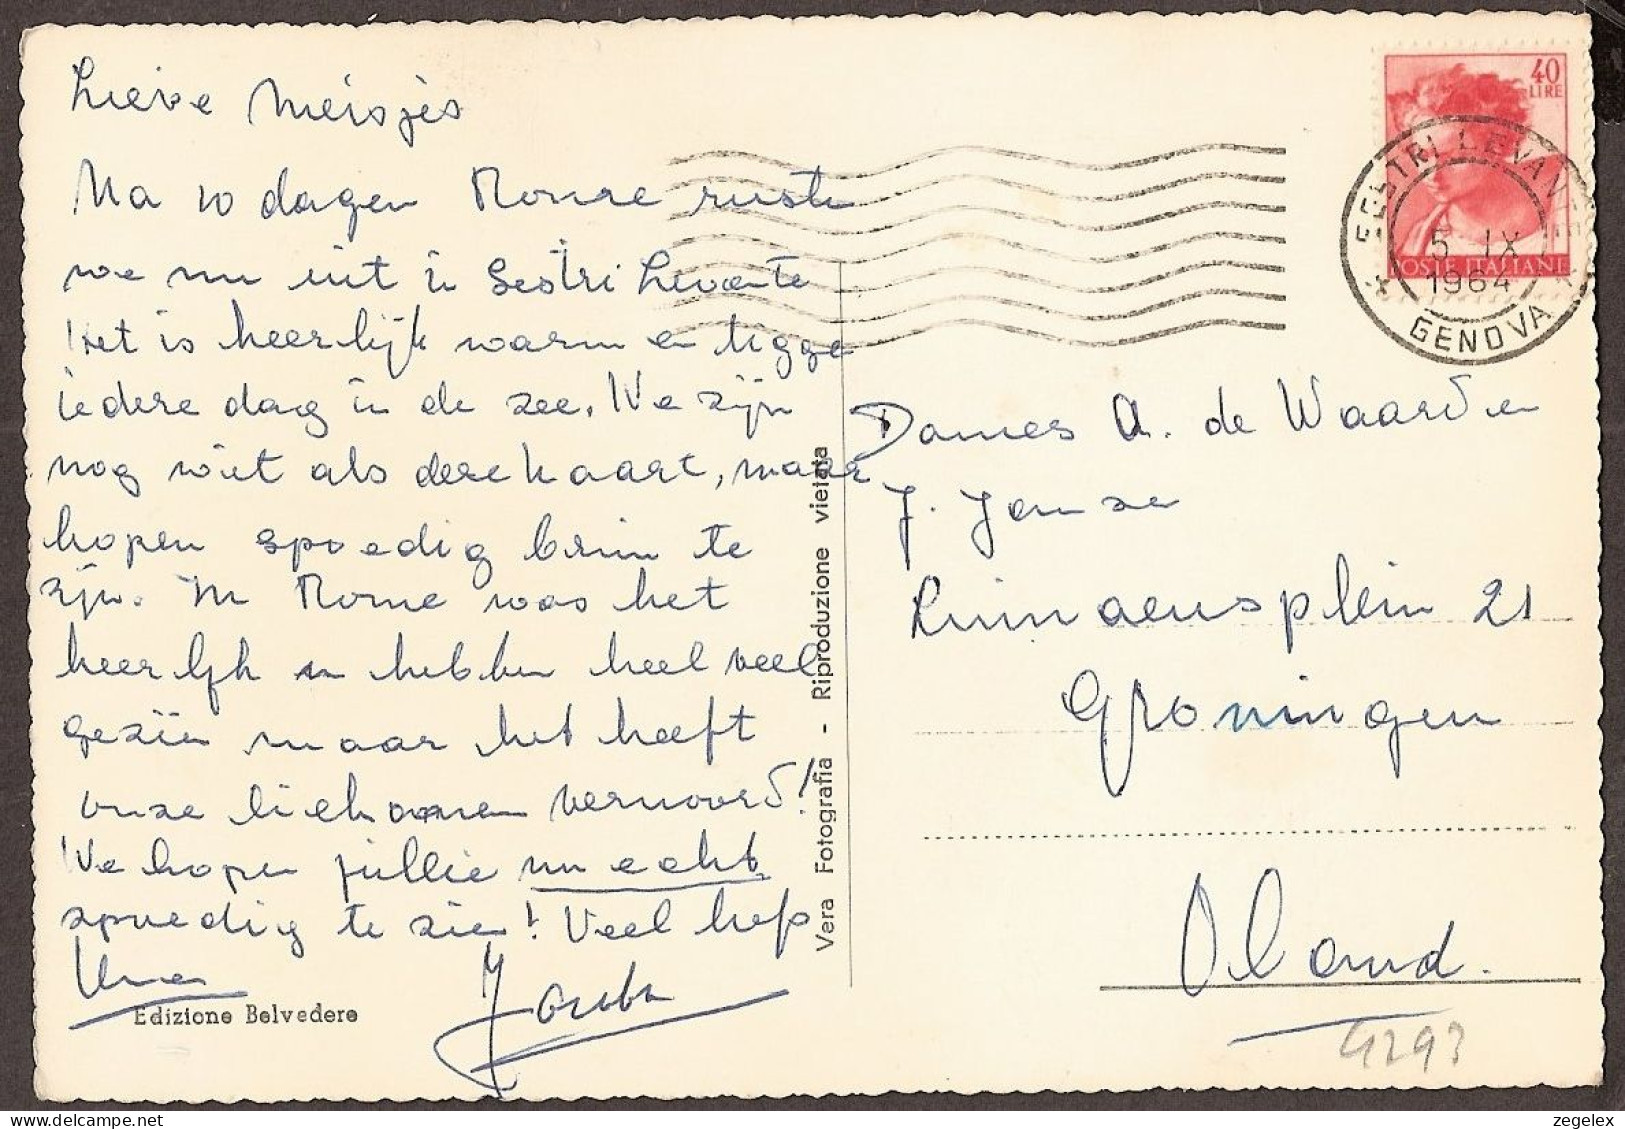 Lieve Meisjes
Na 10 dagen Rome rusten
we nu uit in Sestri Levante
Het is heerlijk warm en liggen
iedere dag in de zee. We zijn
nog niet als deze kaart, maar
hopen spoedig bruin te
zijn. In Rome was het
heerlijk en hebben heel veel
gezien maar het heeft
onze lichamen vermoord!
We hopen jullie nu echt
spoedig te zien! Veel liefs
Edizione Belvedere
Vera Fotografia - Riproduzione vietata
40
LIRE
POSTE ITALIANE
SESTRI LEVANTE
5 IX
1964
GENOVA
Dames A. de Waard en
J. Jansen
Linnaeusplein 21
Groningen
Oland.
9293
zegelex